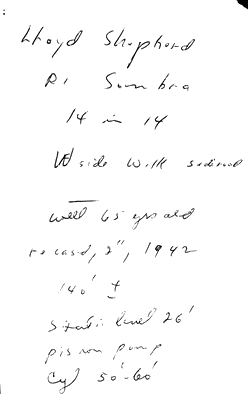 Lloyd Shepherd
R1 Sombra
14 in 14
W side with
well 65 yrs old
recased, 2", 1942
140' ±
Static level 26'
piston pump
Cyl 50'-60'